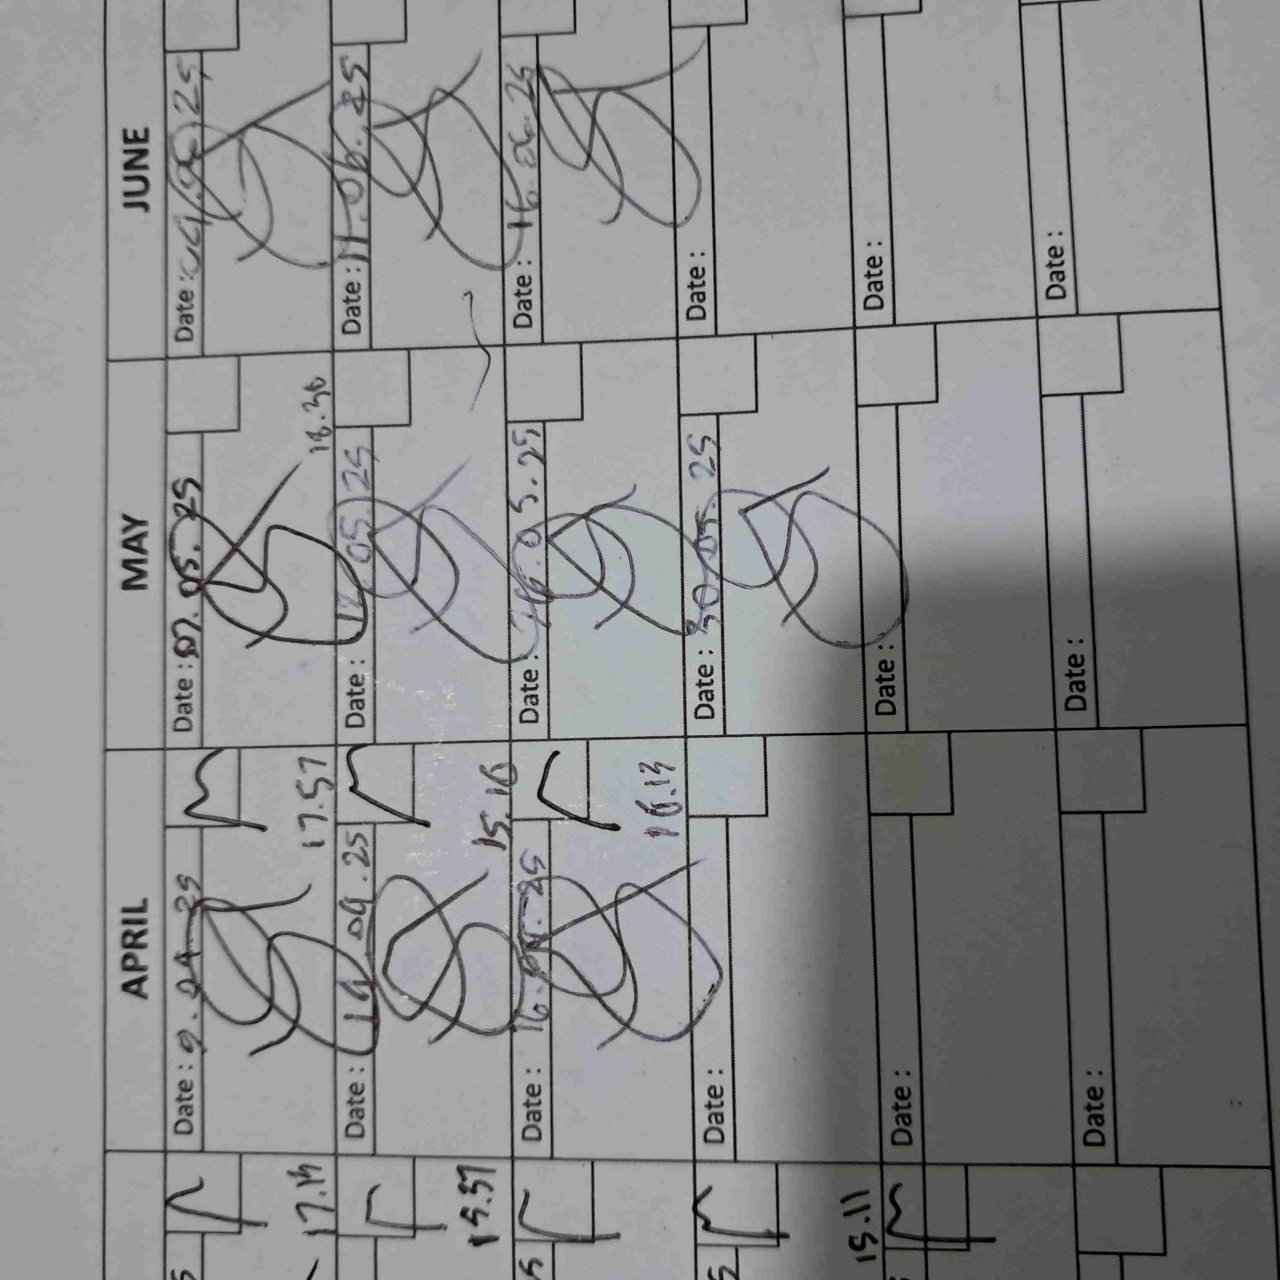 APRIL
MAY
JUNE
Date : 9.04.25
17.57
Date : 07.05.25
18.36
Date : 04.06.25
Date : 14.04.25
15.16
Date : 12.05.25
Date : 11.06.25
Date : 16.04.25
16.13
Date : 26.05.25
Date : 16.06.25
Date :
Date : 30.05.25
Date :
Date :
Date :
Date :
Date :
Date :
Date :
17.14
15.37
15.11